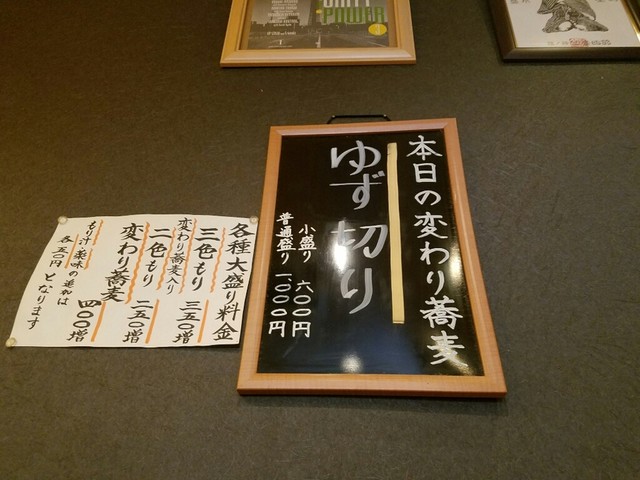 UNITY
POWER
本日の変わり蕎麦
ゆず切り
小盛り 六〇〇円
普通盛り 一、〇〇〇円
各種大盛り料金
三色もり 三五〇増
変わり蕎麦入り
二色もり 二五〇増
変わり蕎麦 四〇〇増
もり汁・薬味の追加は
各五〇円となります